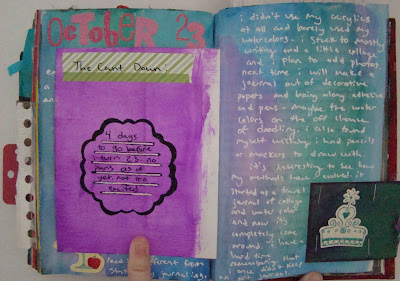 OCTOBER 23
The Count Down:
4 days
to go before
i turn 25. no
plans as of
yet. not too
excited.
different from
journaling.
i didn't use my acrylics
at all and barely used my
watercolors. i stuck to mostly
writing and a little collage
and i plan to add photos
next time. i will make a
journal out of decorative
papers and bring along adhesive
and pens. maybe the water
colors on the off chance
of doodling. i also found
myself wishing i had pencils
or markers to draw with
it's interesting to see how
my methods have evolved. i
started as a travel
journal of collage
and water color
and now it's
completely come
around. i have a
hard time
remembering that
i once didn't keep
an art journal.